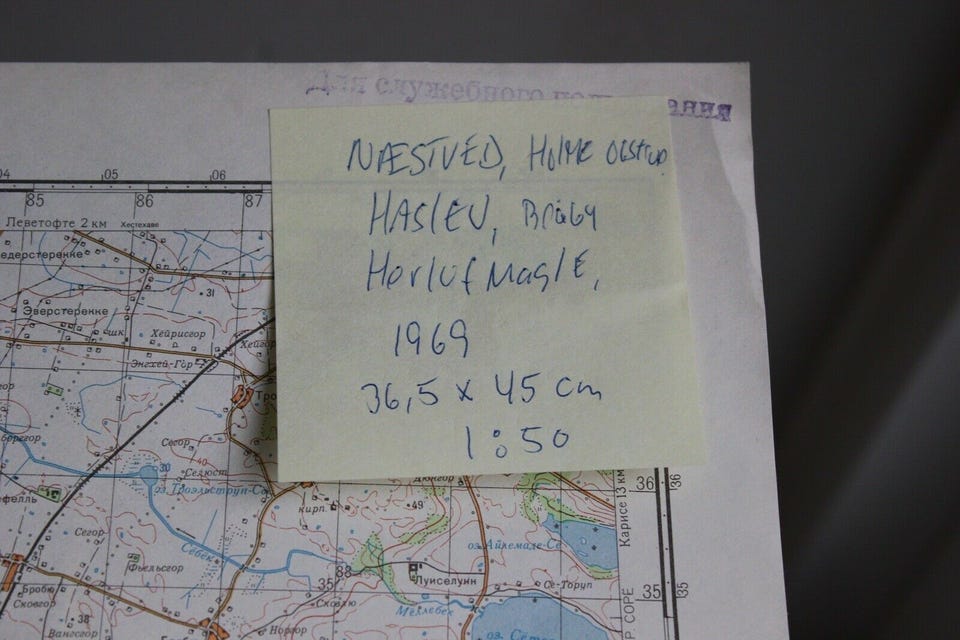 Для служебного пользования
NÆSTVED, HOLME OLSTRUP,
HASLEV, Bråby
HerlufMagle,
1969
36,5 x 45 cm
1:50
04 05 06
85 86 87
Леветофте 2 км Хестехаве
едерстерекке
31
Эверстерекке
шк. Хейрисгор
Хейго
Энгхей-Гор
Тро
гор
бергтор
Сегор
40
Селюст
30
оз. Троэльструп-Се
ефелль
кирп.
Дюнгор
49
36 36
Карисе 13 км
Сегор
Сёбек
оз. Айлемаде-Се
Фьельсгор
88
35
Луиселуин
Се-Торуп
35 35
Бробю
Сковгор
Сковлю
Меллебек
Р СОРЕ
38
Вангсгор
Норгор
оз. Сёт